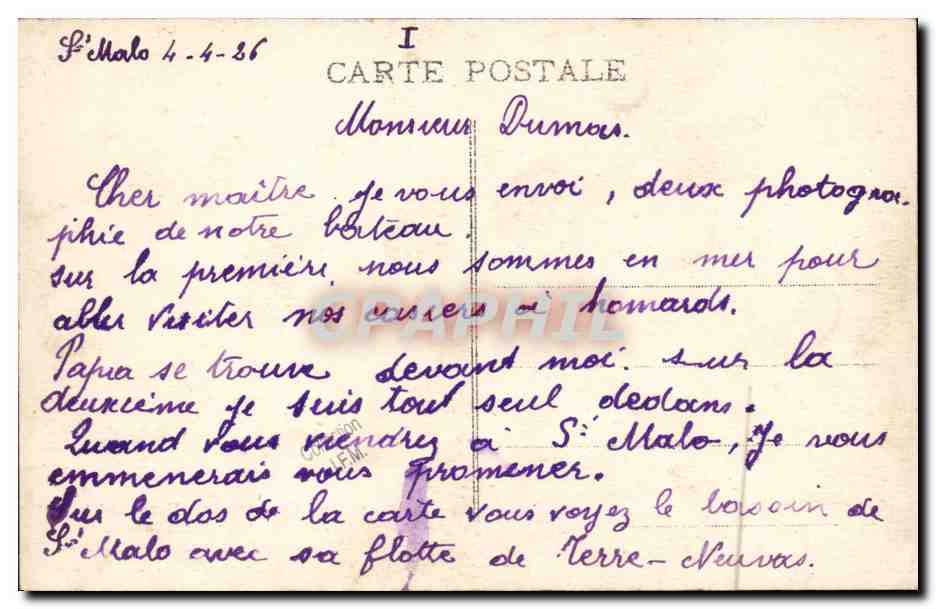 St Malo 4-4-26
I
CARTE POSTALE
Monsieur Dumas.
Cher maître je vous envoi, deux photogra-
phie de notre bateau.
sur la premiére nous sommes en mer pour
aller visiter nos casiers à homards.
Papa se trouve devant moi. sur la
deuxième je suis tout seul dedans.
Quand vous viendrez à St Malo, Je vous
emmenerais vous promener.
Sur le dos de la carte vous voyez le bassin de
St Malo avec sa flotte de Terre-Neuvas.
CPAPHIL
Collection